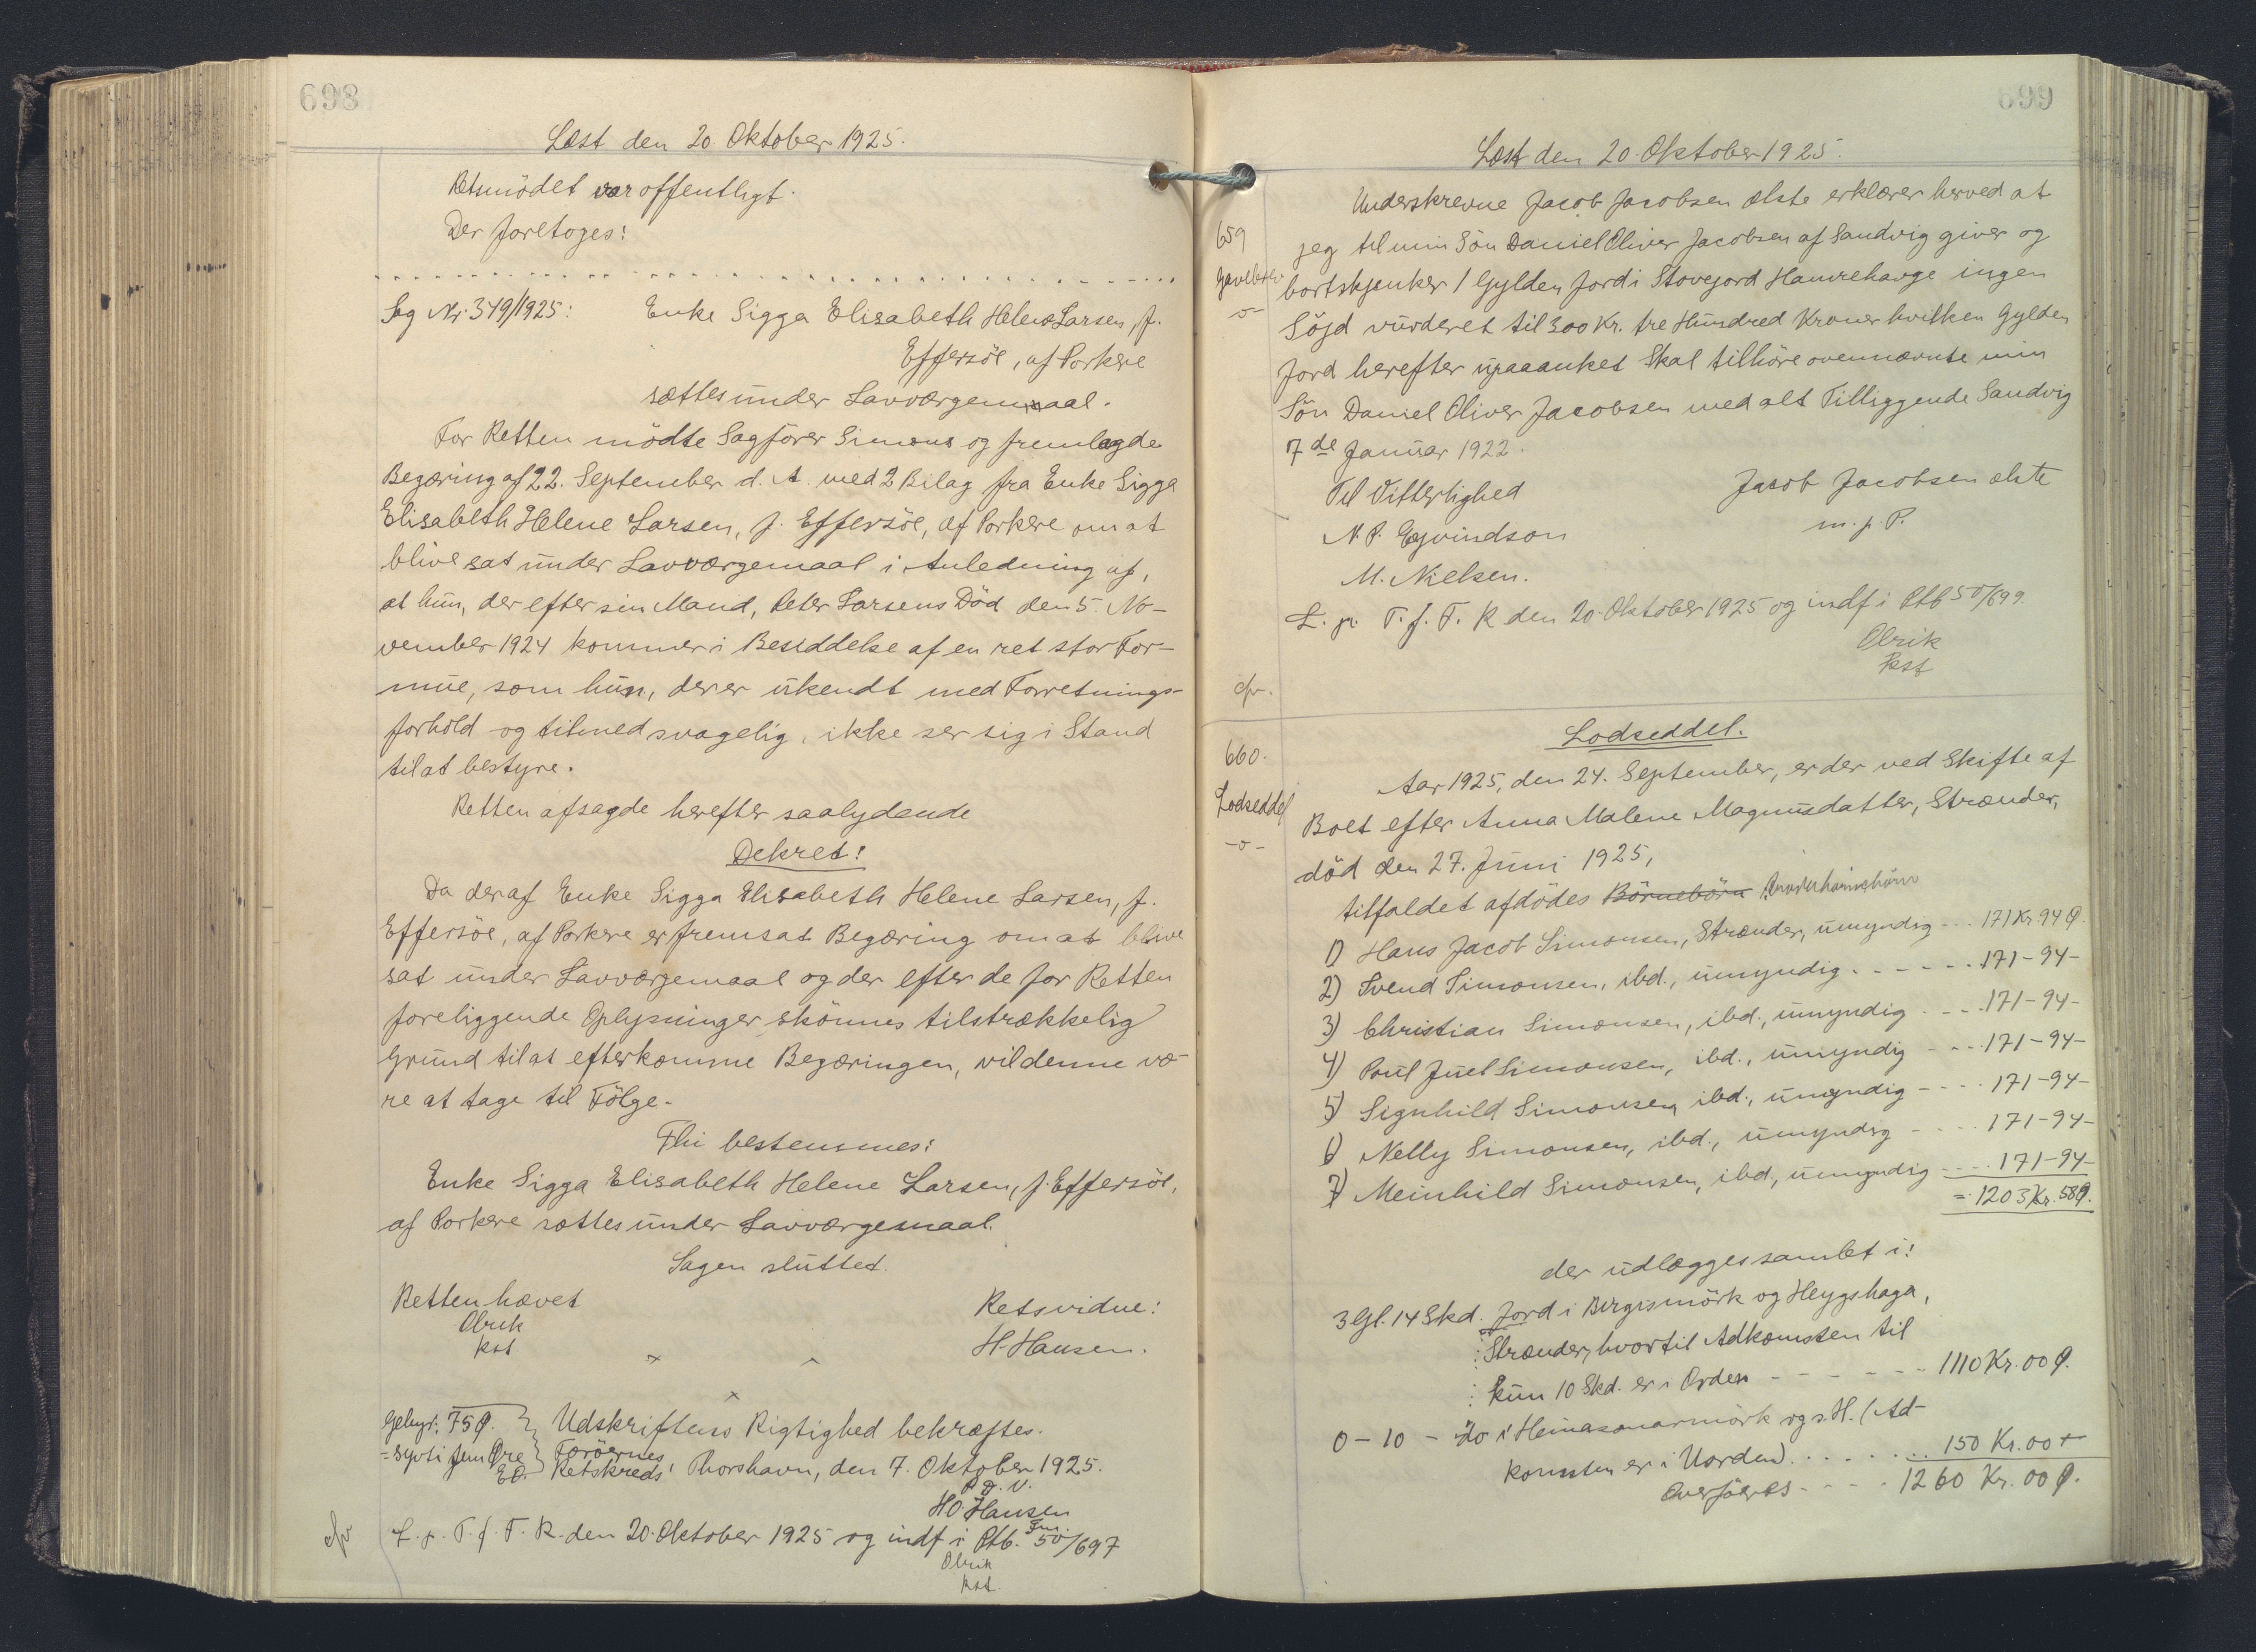 698
Læst den 20. Oktober 1925.
Retsmödet var offentligt.
Der foretoges:
Sag Nr. 349/1925: Enke Sigga Elisabeth Helene Larsen, f.
Effersöe, af Porkere
sættes under Lavværgemaal.
For Retten mödte Sagförer Simons og fremlagde
Begæring af 22. September d. A. med 2 Bilag fra Enke Sigga
Elisabeth Helene Larsen, f. Effersöe, af Porkere om at
blive sat under Lavværgemaal i Anledning af,
at hun, der efter sin Mand, Peter Larsens Död den 5. No-
vember 1924 kommer i Besiddelse af en ret stor For-
mue, som hun, der er ukendt med Forretnings-
forhold og tilmed svagelig, ikke ser sig i Stand
til at bestyre.
Retten afsagde herefter saalydende
Dekret:
Da der af Enke Sigga Elisabeth Helene Larsen, f.
Effersöe, af Porkere er fremsat Begæring om at blive
sat under Lavværgemaal og der efter de for Retten
foreliggende Oplysninger skönnes tilstrækkelig
Grund til at efterkomme Begæringen, vil denne væ-
re at tage til Fölge.
Thi bestemmes:
Enke Sigga Elisabeth Helene Larsen, f. Effersöe,
af Porkere sættes under Lavværgemaal.
Sagen sluttet.
Retten hævet Retsvidne:
Olrik H. Hansen.
kst
Gebyr: 75 Ø. Udskriftens Rigtighed bekræftes.
= syvti fem Øre Færöernes
EO. Retskreds' Thorshavn, den 7. Oktober 1925.
P. D. V.
H.O. Hansen
Fm.
L. p. T. f. F. R. den 20. Oktober 1925 og indf i Ptb. 50/697
Olrik
kst.
699
Læst den 20. Oktober 1925.
659
Gavebrev
-o-
Underskrevne Jacob Jacobsen ælste erklærer herved at
jeg til min Sön Daniel Oliver Jacobsen af Sandvig giver og
bortskjenker 1 Gylden Jord i Stovegord Hamrehavge ingen
Söjd vurderet til 300 Kr. tre Hundred Kroner hvilken Gylden
Jord herefter upaaanket Skal tilhöre ovennævnte min
Sön Daniel Oliver Jacobsen med alt Tilliggende Sandvig
7de Januar 1922.
Til Vitterlighed Jacob Jacobsen ælste
N. P. Eyvindson m. f. P.
M. Nielsen.
L. p. T. f. F. R den 20. Oktober 1925 og indf i Ptb 50/699.
Olrik
kst
cfr.
660.
Lodseddel
-o-
Lodseddel.
Aar 1925, den 24. September, er der ved Skifte af
Boet efter Anna Malene Magnusdatter, Strænder,
död den 27. Juni 1925,
tilfaldet afdödes Börnebörn
1) Hans Jacob Simonsen, Strænder, umyndig - - . 171 Kr. 94 Ø.
2) Svend Simonsen, ibd., umyndig . - - - - . . 171 - 94 -
3) Christian Simonsen, ibd., umyndig . - - . 171 - 94 -
4) Poul Juel Simonsen, ibd., umyndig - - . . 171 - 94 -
5) Signhild Simonsen, ibd., umyndig - - - . 171 - 94 -
6) Nelly Simonsen, ibd., umyndig - - - . 171 - 94 -
7) Meinhild Simonsen, ibd., umyndig - - - . 171 - 94 -
= 1203 Kr. 58 Ø.
der udlægges samlet i:
3 Gl. 14 Skd. Jord i Birgismörk og Heygshaga,
Strænder, hvortil Adkomsten til
kun 10 Skd. er i Orden - - - - - - 1110 Kr. 00 Ø.
0 - 10 - do i Heimasanarmörk og s. H. (Ad-
komsten er i Uorden) . . . . . . . 150 Kr. 00 -
Overföres - - - - 1260 Kr. 00 Ø.